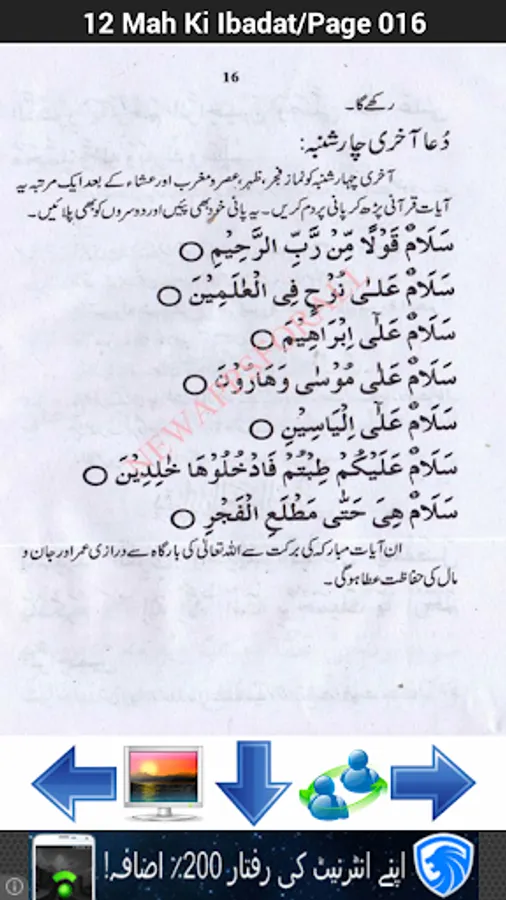 12 Mah Ki Ibadat/Page 016
16
رکھے گا۔
دُعا آخری چار شنبہ:
آخری چہار شنبہ کو نماز فجر، ظہر، عصر و مغرب اور عشاء کے بعد ایک مرتبہ یہ
آیات قرآنی پڑھ کر پانی پر دم کریں۔ یہ پانی خود بھی پیں اور دوسروں کو بھی پلائیں۔
سَلَامٌ قَوْلًا مِّنْ رَّبِّ الرَّحِيْمِ ○
سَلَامٌ عَلٰى نُوْحٍ فِى الْعٰلَمِيْنَ ○
سَلَامٌ عَلٰٓى اِبْرَاهِيْمَ ○
سَلَامٌ عَلٰى مُوْسٰى وَهَارُوْنَ ○
سَلَامٌ عَلٰٓى اِلْيَاسِيْنِ ○
سَلَامٌ عَلَيْكُمْ طِبْتُمْ فَادْخُلُوْهَا خٰلِدِيْنَ ○
سَلَامٌ هِىَ حَتّٰى مَطْلَعِ الْفَجْرِ ○
ان آیات مبارکہ کی برکت سے اللہ تعالٰی کی بارگاہ سے درازی عمر اور جان و
مال کی حفاظت عطا ہوگی۔
NEWAPPSFORALL
اپنے انٹرنیٹ کی رفتار 200٪ اضافہ!